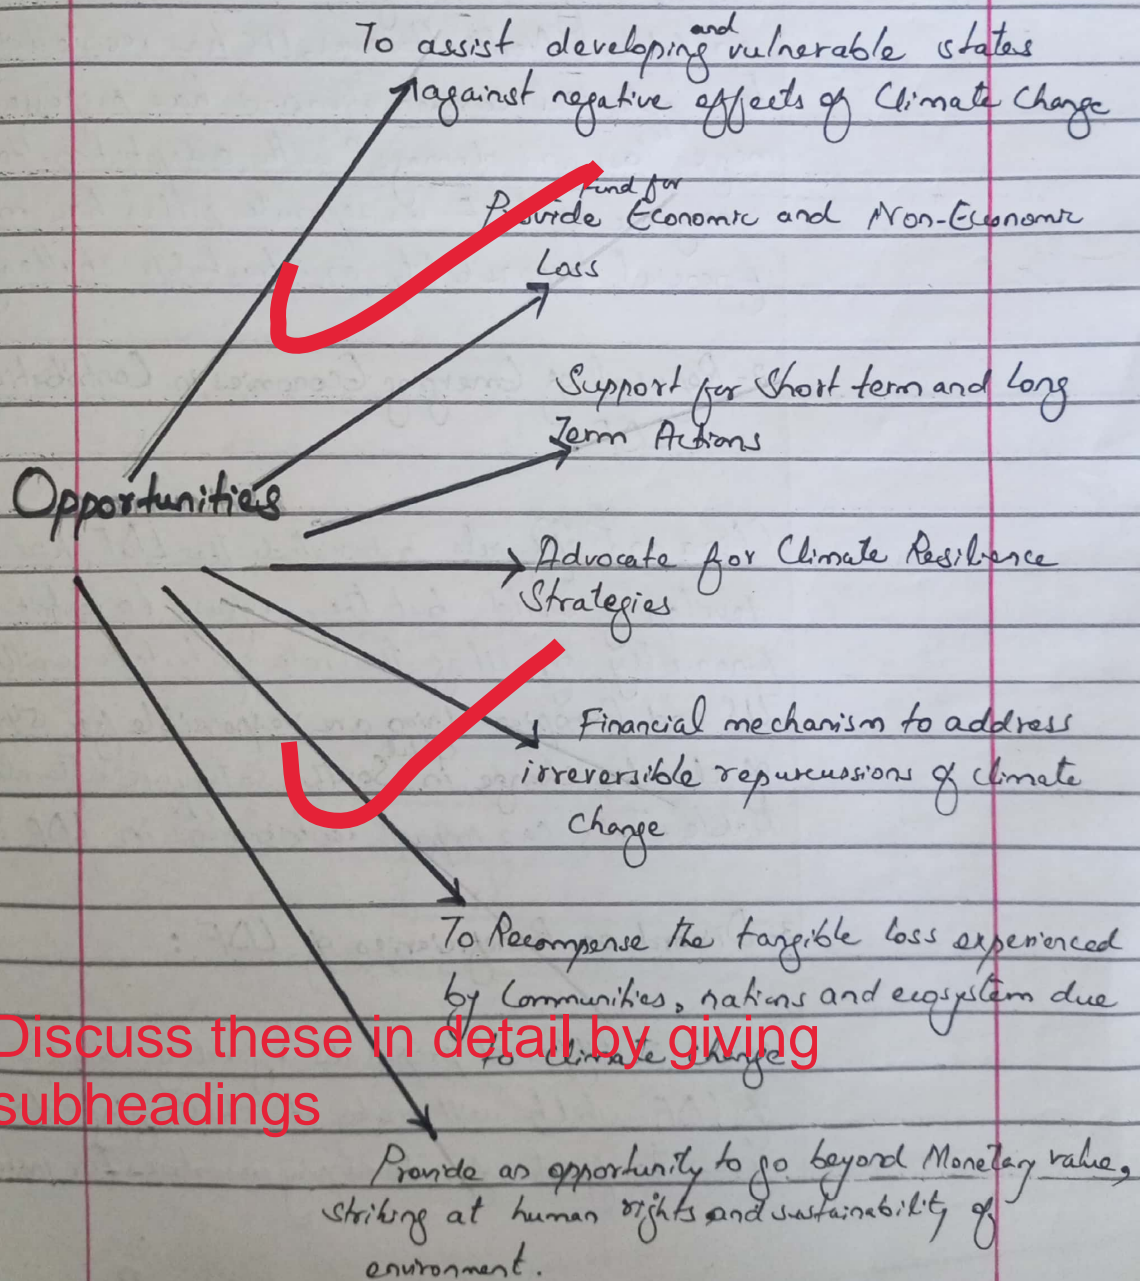 To assist developing and vulnerable states
against negative effects of Climate Change
Fund for
Provide Economic and Non-Economic
Loss
Support for Short term and long
Term Actions
Opportunities
Advocate for Climate Resilience
Strategies
Financial mechanism to address
irreversible repurcussions of climate
change
To Recompense the tangible loss experienced
by Communities, nations and ecosystem due
to Climate change
Discuss these in detail by giving
subheadings
Provide an opportunity to go beyond Monetary value,
striking at human rights and sustainability of
environment.